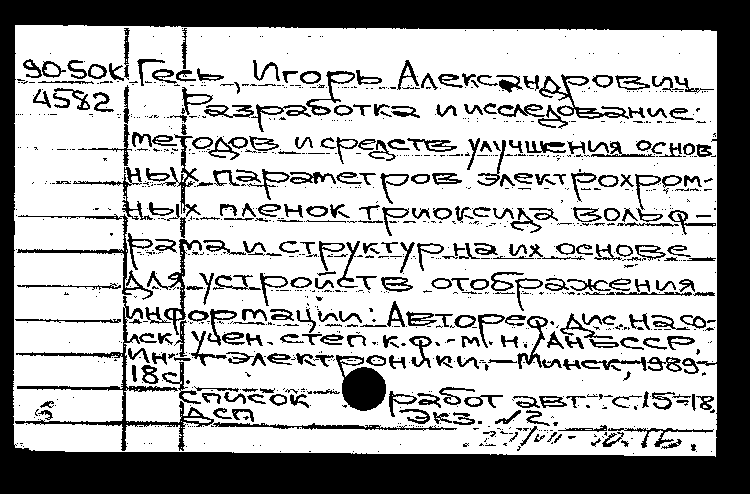 90-50К Гесь, Игорь Александрович
4582 Разработка и исследование
методов и средств улучшения основ
ных параметров электрохром-
ных пленок триоксида вольф-
рама и структур на их основе
для устройств отображения
информации: Автореф. дис. на со-
иск. учен. степ. к.ф.-м.н./АН БССР,
Ин-т электроники.-Минск, 1989.-
18с.
список работ авт.: с.15-18
ДСП Экз. №2.
б